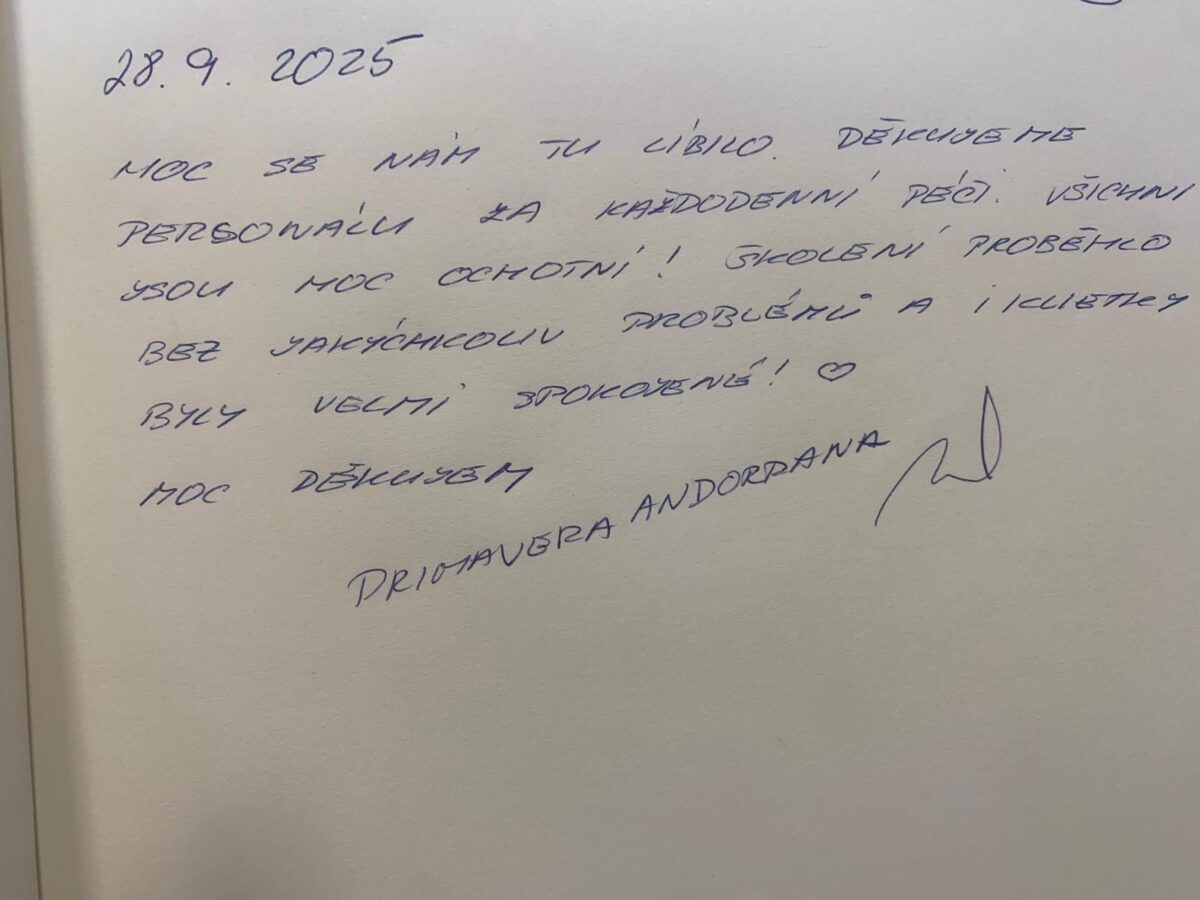 28. 9. 2025
MOC SE NÁM TU LÍBILO. DĚKUJEME
PERSONÁLU ZA KAŽDODENNÍ PÉČI. VŠICHNI
JSOU MOC OCHOTNÍ! ŠKOLENÍ PROBĚHLO
BEZ JAKÝCHKOLIV PROBLÉMŮ A I KLIETKY
BYLY VELMI SPOKOJENÉ! ♡
MOC DĚKUJEM
PRIMAVERA ANDORRANA